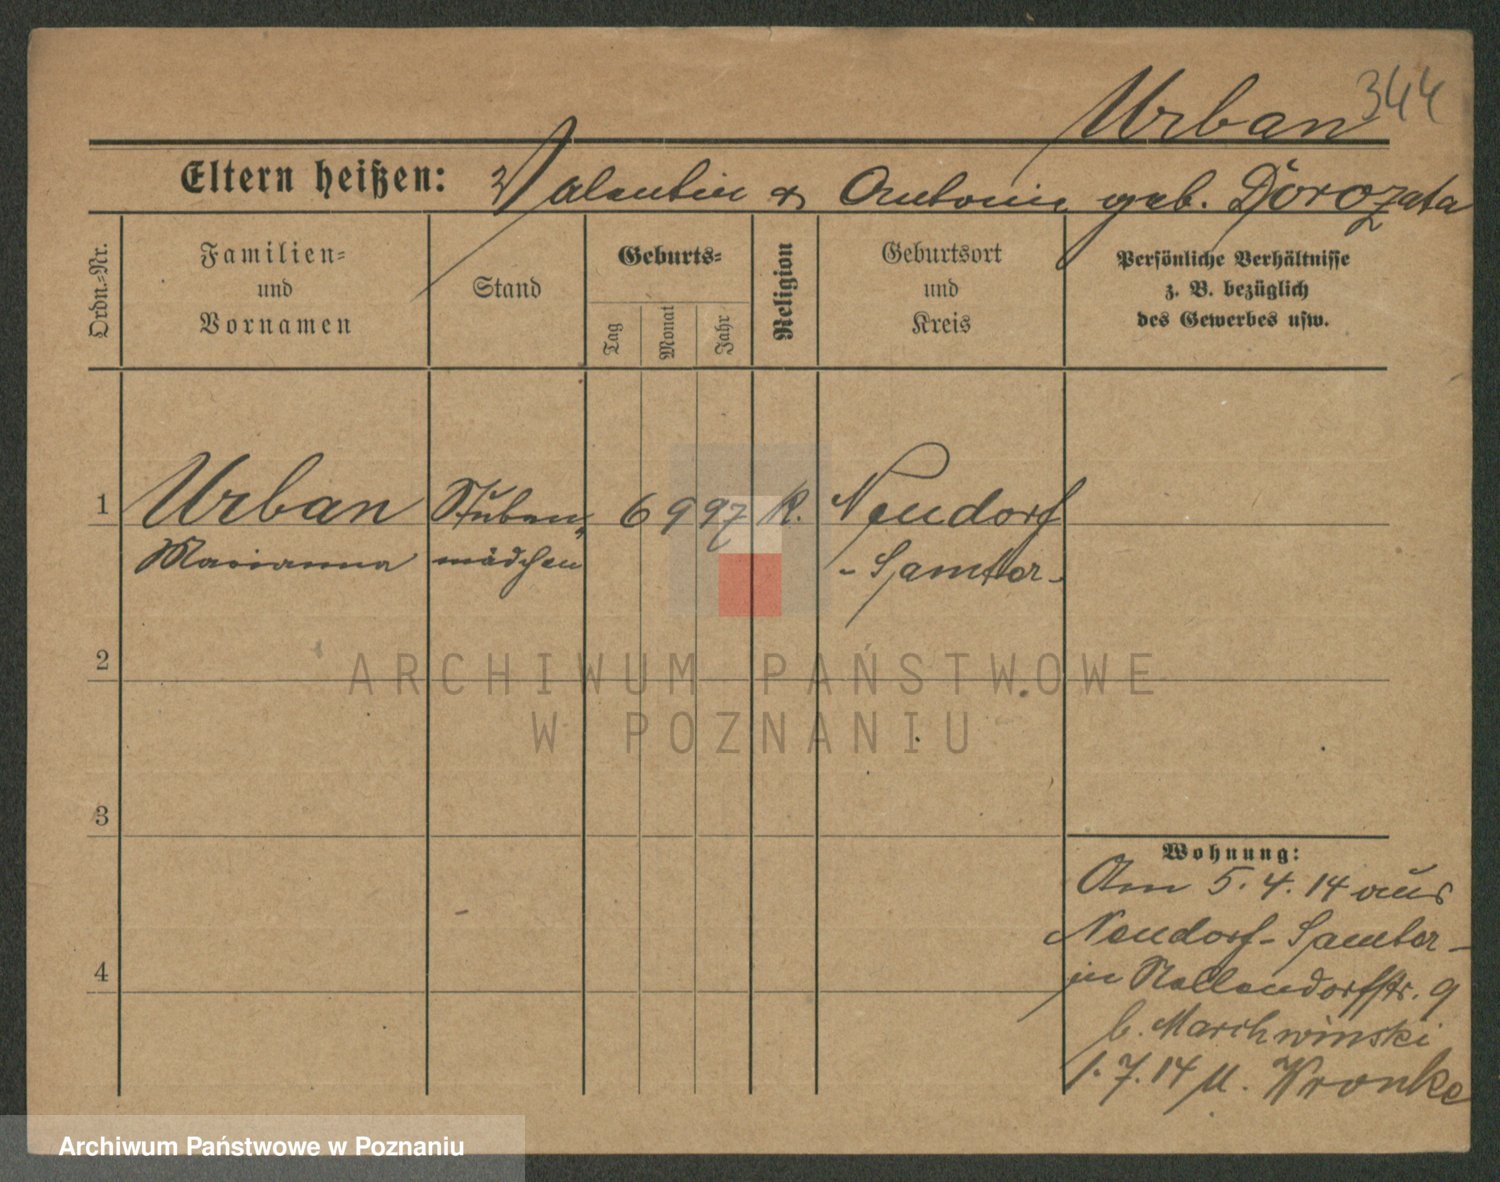 Urban 344
Eltern heißen: Valentin & Antonie geb. Dorozata
Ordn.-Nr.
Familien-
und
Vornamen
Stand
Geburts-
Tag
Monat
Jahr
Religion
Geburtsort
und
Kreis
Persönliche Verhältnisse
z. B. bezüglich
des Gewerbes usw.
1 Urban Stuben- 6 9 97 k. Neudorf
Marianna mädchen - Samter -
2
3
4
Wohnung:
Am 5.4.14 aus
Neudorf - Samter -
in Nollendorffstr. 9
b. Marchwinski
1.7.14 u. Wronke
ARCHIWUM PAŃSTWOWE
W POZNANIU
Archiwum Państwowe w Poznaniu